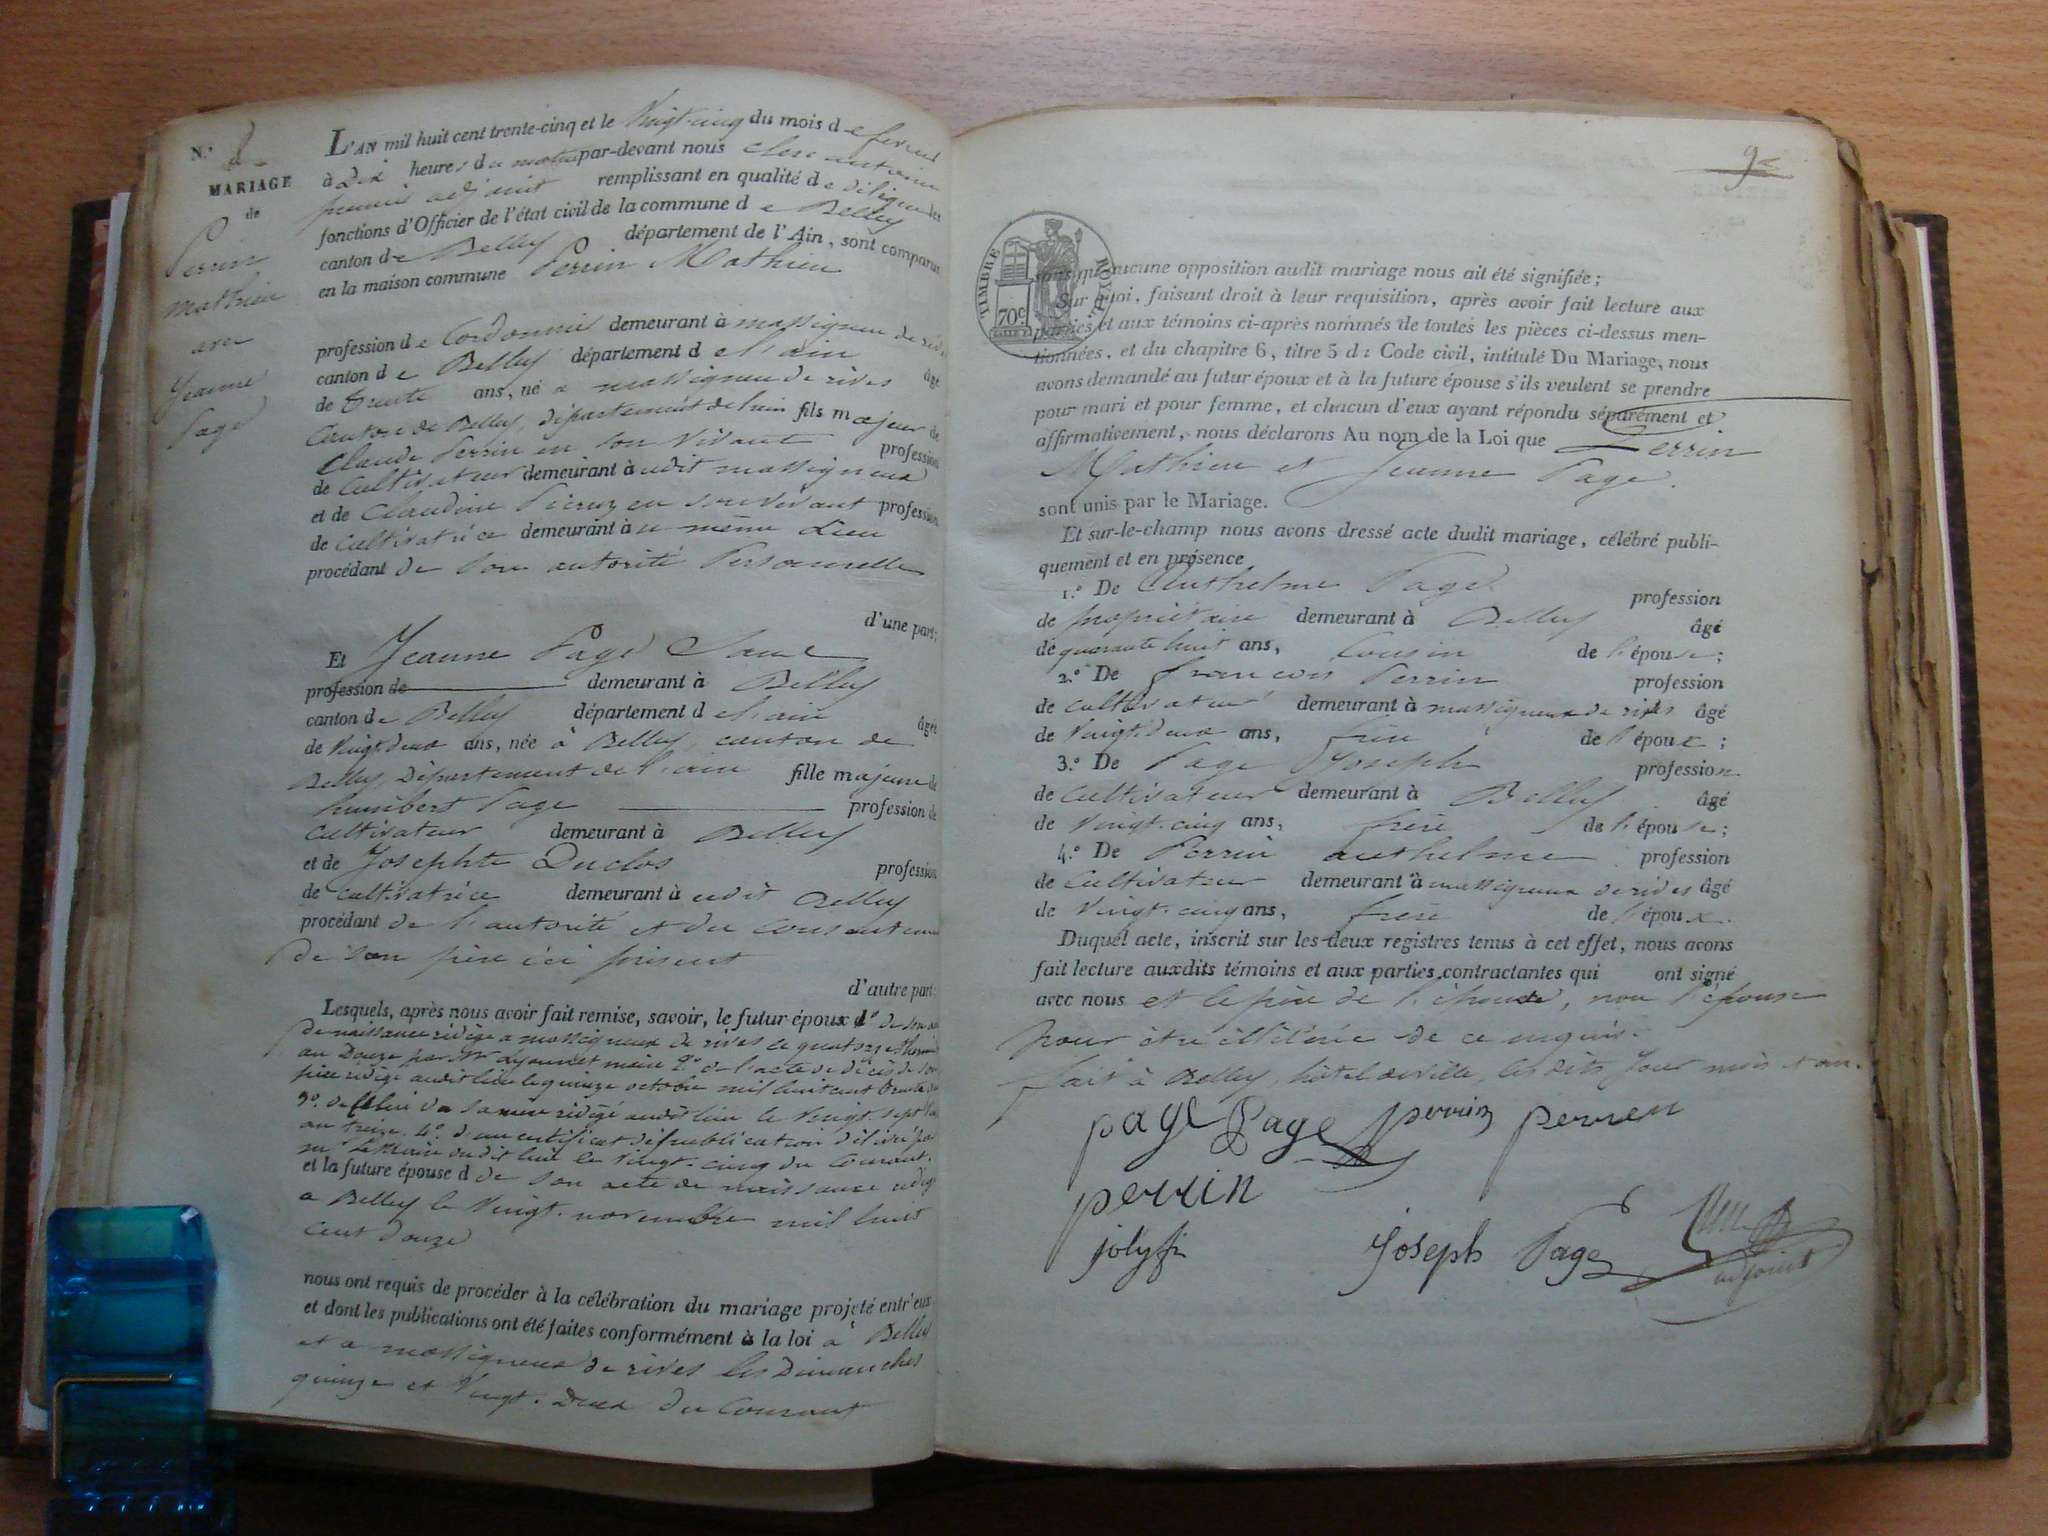 N.°
MARIAGE
de
Perrin
mathieu
avec
Jeanne
Page
L'AN mil huit cent trente-cinq et le Vingt-cinq du mois de fevrier
à Dix heures du matin par-devant nous
premier adjoint remplissant en qualité de délégué les
fonctions d'Officier de l'état civil de la commune de Belley
canton de Belley département de l'Ain, sont comparus
en la maison commune Perrin Mathieu
profession de Cordonnier demeurant à massigneu de rives
canton de Belley département de l'ain âgé
de trente ans, né a massigneu de rives
Canton de Belley, département de l'ain fils majeur de
Claude Perrin en son vivant profession
de Cultivateur demeurant à udit massigneux
et de Claudine en son vivant profession
de cultivatrice demeurant à u même Lieu
procédant de son autorité Personnelle
d'une part;
Et Jeanne Page Sans
profession de demeurant à Belley
canton de Belley département de l'ain âgée
de Vingt-deux ans, née à Belley, canton de
Belley, Département de l'ain fille majeure de
humbert Page profession de
cultivateur demeurant à Belley
et de Josephte Duclos profession
de cultivatrice demeurant à udit Belley
procédant de l'autorité et du consentement
de son père ici présent
d'autre part;
Lesquels, après nous avoir fait remise, savoir, le futur époux 1° de son acte
de naissance rédigé a massigneux de rives le quatorze
an Douze par Mr maire 2° de l'acte de décès de son
père rédigé audit lieu le quinze octobre mil huit cent trente
3°. de celui de sa mère rédigé audit lieu le Vingt-sept
an treize, 4°. d'un certificat de publication délivré par
mr le Maire dudit lieu le Vingt-cinq du Courant.
et la future épouse d de son acte de naissance rédigé
a Belley le Vingt-novembre mil huit
cent douze
nous ont requis de procéder à la célébration du mariage projeté entr'eux
et dont les publications ont été faites conformément à la loi a Belley
et a massigneux de rives les Dimanches
quinze et Vingt-Deux du Courant
9e
TIMBRE ROYAL
70c
sans qu'aucune opposition audit mariage nous ait été signifiée;
Sur quoi, faisant droit à leur requisition, après avoir fait lecture aux
parties et aux témoins ci-après nommés de toutes les pièces ci-dessus men-
tionnées, et du chapitre 6, titre 5 du Code civil, intitulé Du Mariage, nous
avons demandé au futur époux et à la future épouse s'ils veulent se prendre
pour mari et pour femme, et chacun d'eux ayant répondu séparément et
affirmativement, nous déclarons Au nom de la Loi que Perrin
Mathieu et Jeanne Page.
sont unis par le Mariage.
Et sur-le-champ nous avons dressé acte dudit mariage, célébré publi-
quement et en présence
1.° De Anthelme Page profession
de propriétaire demeurant à Belley âgé
de quarante huit ans, Cousin de l'épouse;
2.° De francois Perrin profession
de cultivateur demeurant à massigneux de rives âgé
de Vingt-Deux ans, frère de l'époux;
3.° De Page Joseph profession
de Cultivateur demeurant à Belley âgé
de Vingt-cinq ans, frère de l'épouse;
4.° De Perrin anthelme profession
de Cultivateur demeurant à massigneux de rives âgé
de Vingt-cinq ans, frère de l'époux.
Duquel acte, inscrit sur les deux registres tenus à cet effet, nous avons
fait lecture auxdits témoins et aux parties contractantes qui ont signé
avec nous et le père de l'épouse, non l'épouse
pour être illitérée de ce requis.
fait à Belley, hôtel de ville, les dits Jour mois et an.
page Page perrin perren
perrin
joly fr Joseph Page
adjoint